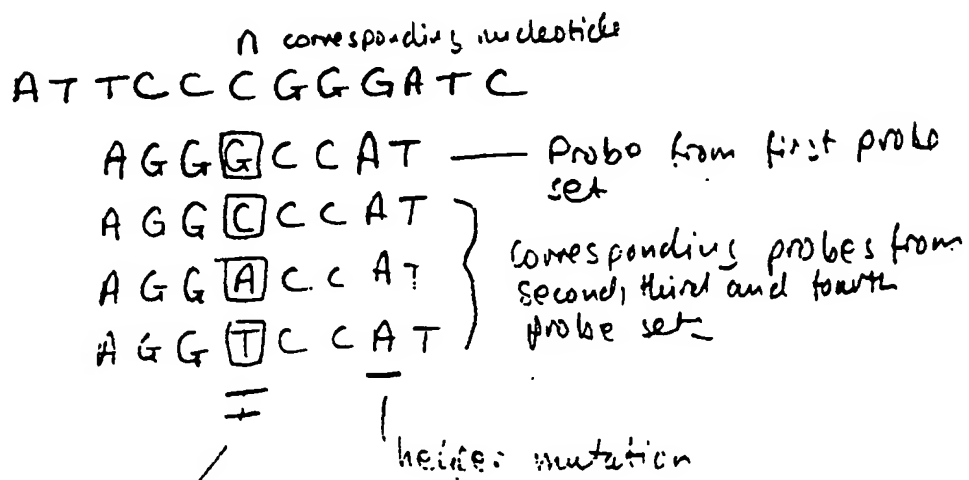 n corresponding nucleotide
A T T C C C G G G A T C
A G G G C C A T — Probe from first probe set
A G G C C C A T
A G G A C C A T
A G G T C C A T
corresponding probes from
second, third and fourth
probe sets
mutation